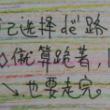 己选择de路
就算跪著，
也要走完